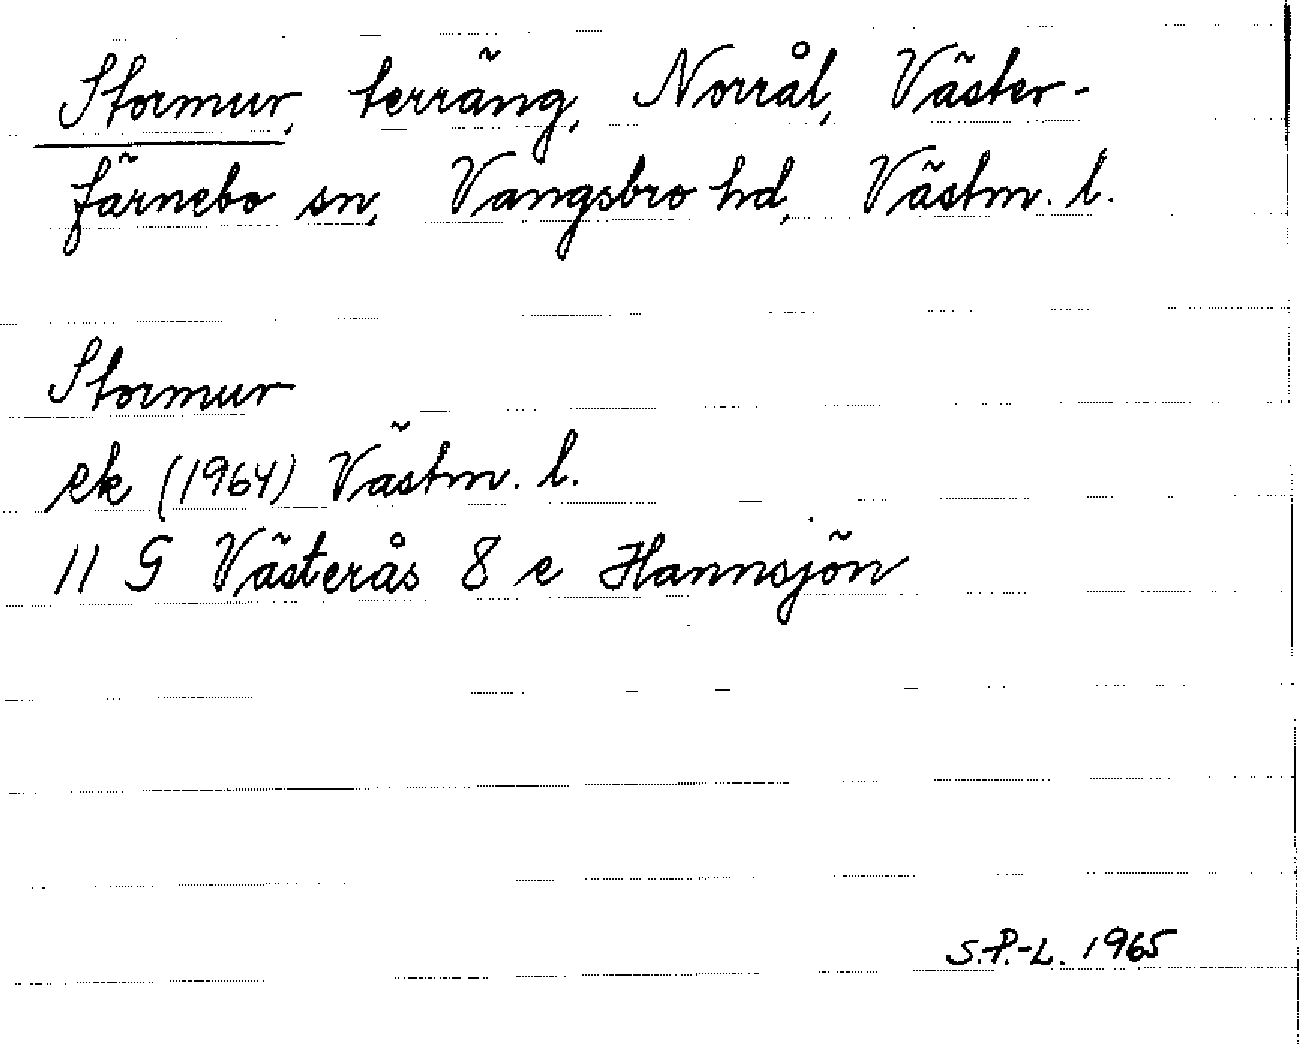 Stormur, terräng, Norrål, Väster-
färnebo sn, Vangsbro hd, Västm. l.
Stormur
ek (1964) Västm. l.
11 G Västerås 8 e Hannsjön
S.P.-L. 1965